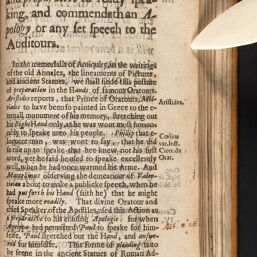 and preparative to ready spea-
king, and commendeth an A-
pology or any set speech to the
Auditours.
In the memorialls of Antiquity, in the writings
of the old Annales, the lineaments of Pictures,
and ancient Statues, we shall finde this posture
of preparation in the Hands of famous Oratours.
Aristides reports, that Prince of Oratours, Milti-
ades to have been so painted in Greece to the e-
small monument of his memory, stretching out
his Right Hand only, as he was wont most honour-
ably to speake unto his people. Phillip that e-
loquent man, was wont to say, that he did
to rise up to speake that hee knew not his first
word, yet he said he used to speake excellently
well, when he had once warmed his Arme. And
observing the demeanour of
about to make a publicke speech, when he
had put forth his Hand (saith he) that he might
speake more readily. That divine Oratour and
chief Speaker of the Apostles, used this Action as
a preparative to his ensuing Apologie: for when
Agrippa had permitted Paul to speake for him
selfe, Paul stretched out the Hand, and answe-
red for himselfe. This forme of pleading is to
be seene in the ancient Statues of Roman Ad-
Aristides.
var. lect.
Cicero de
Orat.
Act. 26